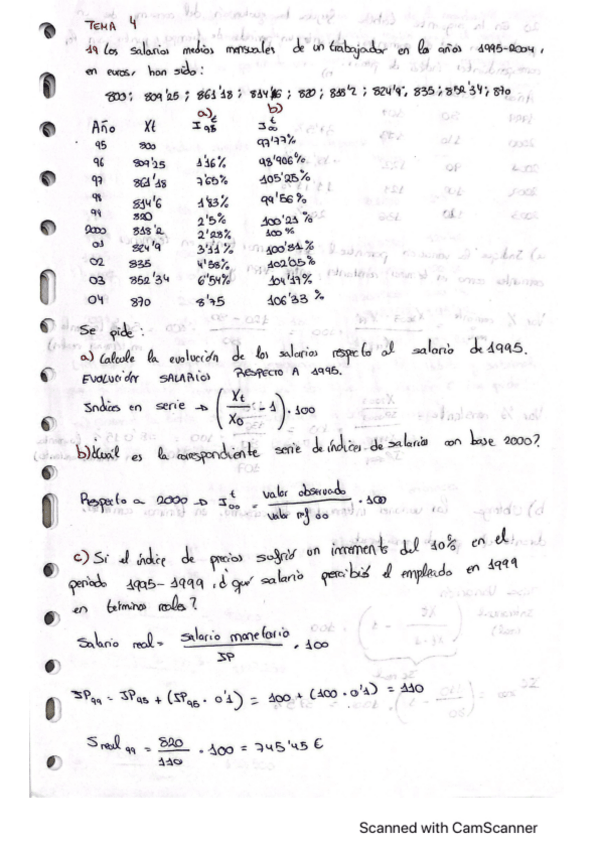 TEMA 4
19 Los salarios medios mensuales de un trabajador en los años 1995-2004,
en euros, han sido:
800; 809'25; 861'18; 814'6; 820; 818'2; 824'9; 835; 852'34; 870
a) b)
Año Xt I t 95 I t 00
95 800 97'77%
96 809'25 1'16% 98'906%
97 861'18 7'65% 105'25%
98 814'6 1'83% 99'56%
99 820 2'5% 100'21%
2000 818'2 2'28% 100%
01 824'9 3'11% 100'81%
02 835 4'38% 102'05%
03 852'34 6'54% 104'17%
04 870 8'75 106'33%
Se pide:
a) Calcule la evolución de los salarios respecto al salario de 1995.
EVOLUCIÓN SALARIOS RESPECTO A 1995.
Indices en serie → (Xt/X0 - 1) · 100
b) ¿Cuál es la correspondiente serie de índices de salarios con base 2000?
Respecto a 2000 → I t 00 = valor observado / valor ref 00 · 100
c) Si el índice de precios sufrió un incremento del 10% en el
periodo 1995-1999, ¿qué salario percibió el empleado en 1999
en terminos reales?
Salario real = salario monetario / IP · 100
IP99 = IP95 + (IP95 · 0'1) = 100 + (100 · 0'1) = 110
S real 99 = 820/110 · 100 = 745'45 €
Scanned with CamScanner